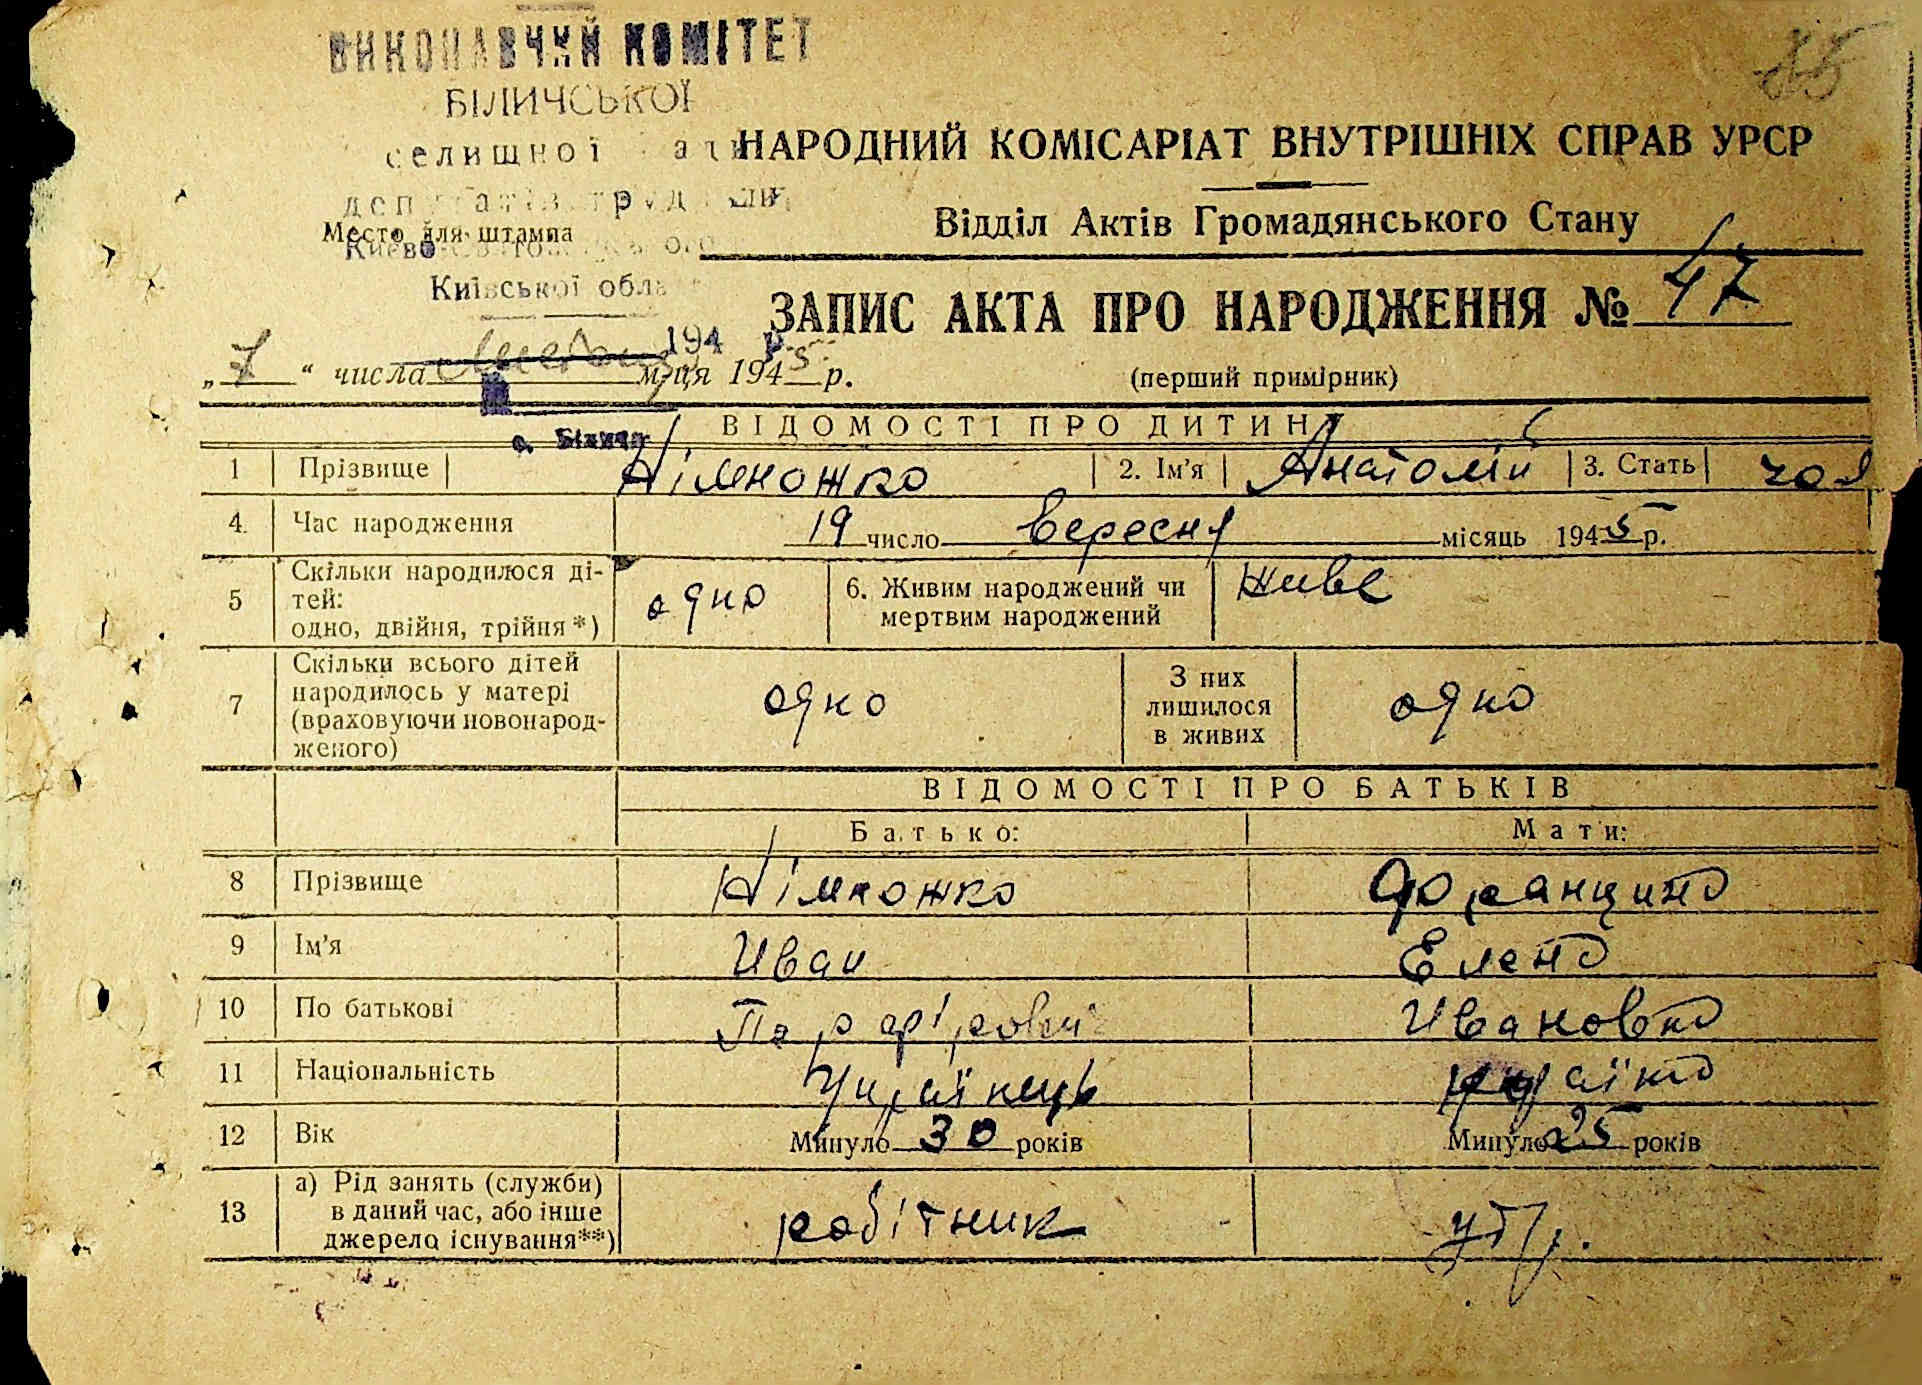 85
ВИКОНАВЧИЙ КОМІТЕТ
БІЛИЧСЬКОЇ
селищної
НАРОДНИЙ КОМІСАРІАТ ВНУТРІШНІХ СПРАВ УРСР
Відділ Актів Громадянського Стану
Место для штампа
Київської обл
ЗАПИС АКТА ПРО НАРОДЖЕННЯ № 47
194 р.
„ 7 “ числа м-ця 1945 р.
(перший примірник)
ВІДОМОСТІ ПРО ДИТИНУ
с. Біличі
1 Прізвище Німножко 2. Ім'я Анатолій 3. Стать чол
4. Час народження 19 число вересня місяць 1945 р.
5 Скільки народилося ді-
тей:
одно, двійня, трійня*) одно
6. Живим народжений чи
мертвим народжений живе
7 Скільки всього дітей
народилось у матері
(враховуючи новонарод-
женого) одно
З них
лишилося
в живих одно
ВІДОМОСТІ ПРО БАТЬКІВ
Батько: Мати:
8 Прізвище Німножко
9 Ім'я Иван Елена
10 По батькові Ивановна
11 Національність Українець
12 Вік Минуло 30 років Минуло 25 років
13 а) Рід занять (служби)
в даний час, або інше
джерело існування**) робітник